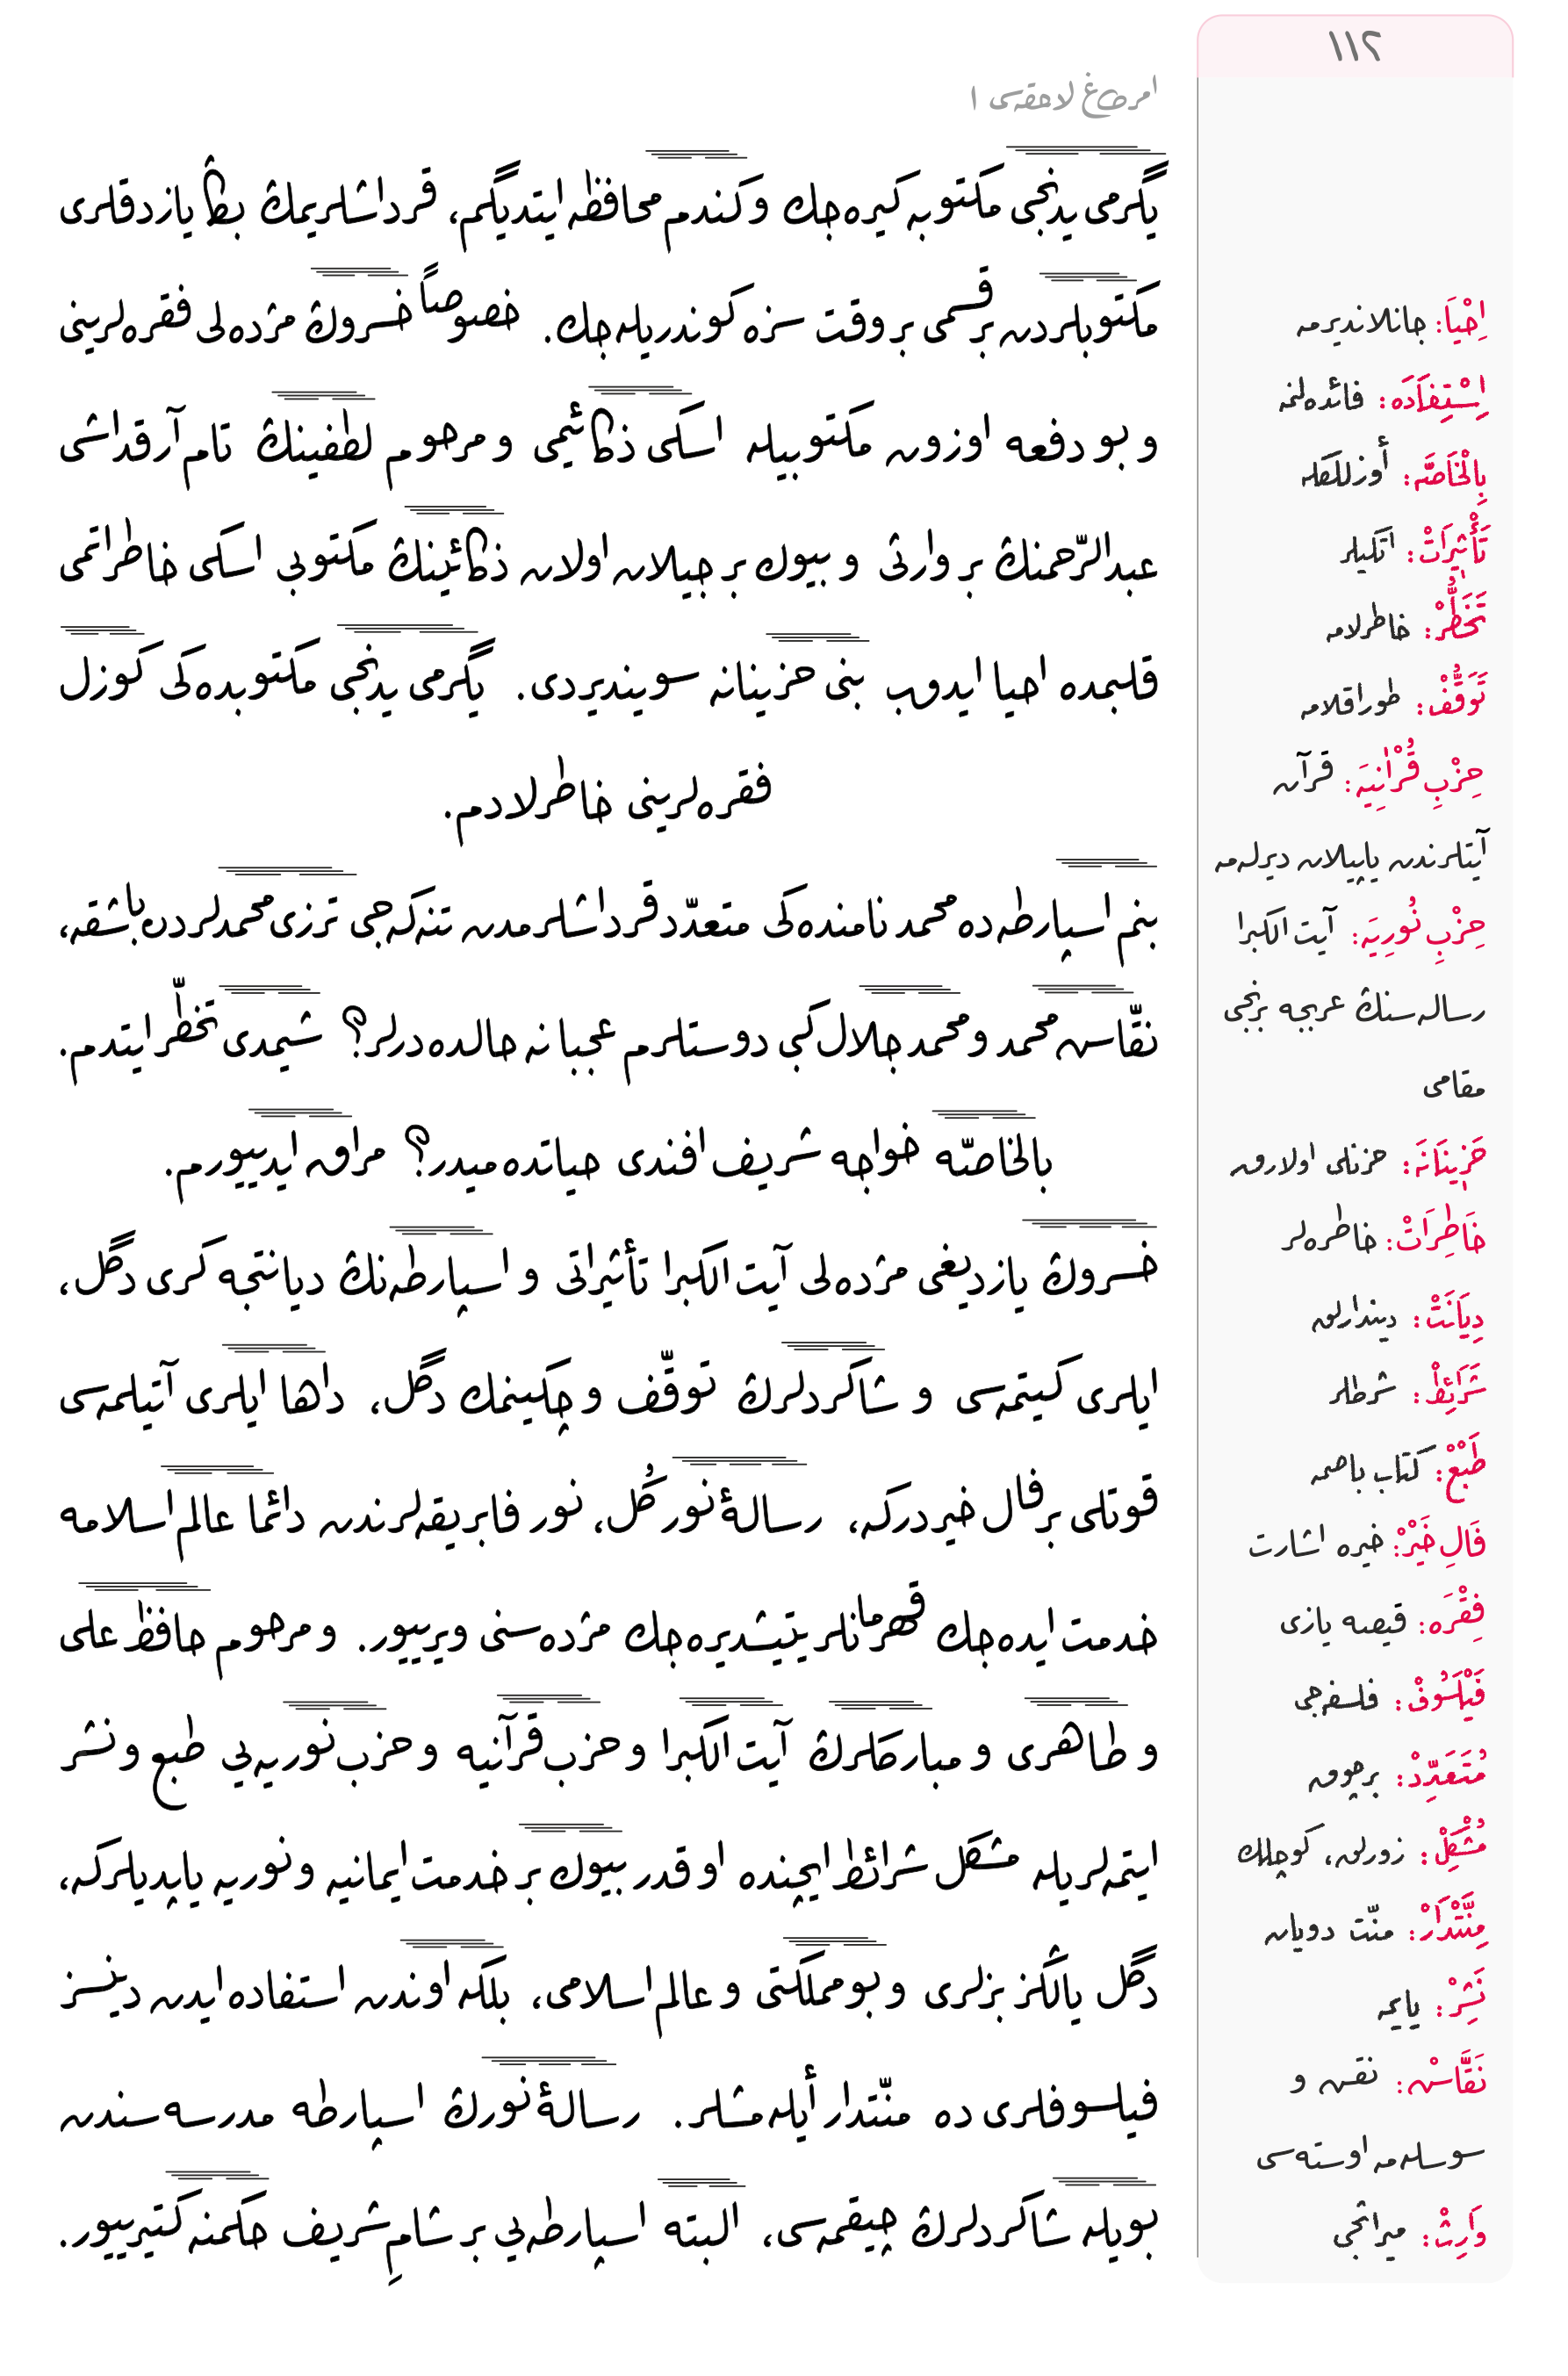 ١١٢
امرطاغ لاحقه‌سى ١
يگرمى يدنجى مكتوبه گيره‌جك و كندم محافظه ايتديگم، قرداشلريمڭ بڭا يازدقلرى
مكتوبلردن بر قسمى بر وقت سزه كوندريله‌جك. خصوصاً خسروڭ مژده‌لى فقره‌لرينى
و بو دفعه اوزون مكتوبيله اسكى ذكائيمى و مرحوم لطفينڭ تام آرقداشى
عبدالرّحمنڭ بر وارثى و بيوك بر جيلان اولان ذكائينڭ مكتوبى اسكى خاطراتمى
قلبمده احيا ايدوب بنى حزينانه سوينديردى. يگرمى يدنجى مكتوبده‌كى كوزل
فقره‌لرينى خاطرلادم.
بنم اسپارطه‌ده محمد نامنده‌كى متعدّد قرداشلرمدن تنه‌كه‌جى ترزى محمدلردن باشقه،
نقّاش محمد و محمد جلال كبى دوستلرم عجبا نه حالده‌درلر؟ شيمدى تخطّر ايتدم.
بالخاصّه خواجه شريف افندى حياتده ميدر؟ مراق ايدييورم.
خسروڭ يازديغى مژده‌لى آيت الكبرا تأثيراتى و اسپارطه‌نڭ ديانتجه كرى دگل،
ايلرى كيتمه‌سى و شاكردلرڭ توقّف و چكينمك دگل، داها ايلرى آتيلمه‌سى
قوتلى بر فال خيردركه، رسالۀ نور گُل، نور فابريقه‌لرندن دائما عالم اسلامه
خدمت ايده‌جك قهرمانلر يتيشديره‌جك مژده‌سنى ويرييور. و مرحوم حافظ على
و طاهرى و مباركلرڭ آيت الكبرا و حزب قرآنيه و حزب نوريه‌يي طبع و نشر
ايتمه‌لريله مشكل شرائط ايچنده او قدر بيوك بر خدمت ايمانيه و نوريه ياپديلركه،
دگل يالڭز بزلرى و بو مملكتى و عالم اسلامى، بلكه اوندن استفاده ايدن دينسز
فيلسوفلرى ده منّتدار أيله‌مشلر. رسالۀ نورڭ اسپارطه مدرسه‌سندن
بويله شاكردلرڭ چيقمه‌سى، البته اسپارطه‌يي بر شامِ شريف حكمنه كتيرييور.
اِحْيَا: جانلانديرمه
اِسْتِفَادَه: فائده‌لنمه
بِالْخَاصَّه: أوزللكله
تَأْثِيرَاتْ: اتكيلر
تَخَطُّرْ: خاطرلامه
تَوَقُّفْ: طوراقلامه
حِزْبِ قُرْاٰنِيَه: قرآن
آيتلرندن ياپيلان ديرله‌مه
حِزْبِ نُورِيَه: آيت الكبرا
رساله‌سنڭ عربجه برنجى
مقامى
حَزِينَانَه: حزنلى اولارق
خَاطِرَاتْ: خاطره‌لر
دِيَانَتْ: ديندارلق
شَرَائِطْ: شرطلر
طَبْعْ: كتاب باصمه
فَالِ خَيْرْ: خيره اشارت
فِقْرَه: قيصه يازى
فَيْلَسُوفْ: فلسفه‌جى
مُتَعَدِّدْ: برچوق
مُشْكِلْ: زورلق، كوچلك
مِنَّتْدَارْ: منّت دويان
نَشِرْ: يايمه
نَقَّاشْ: نقش و
سوسله‌مه اوسته‌سى
وَارِثْ: ميراثجى